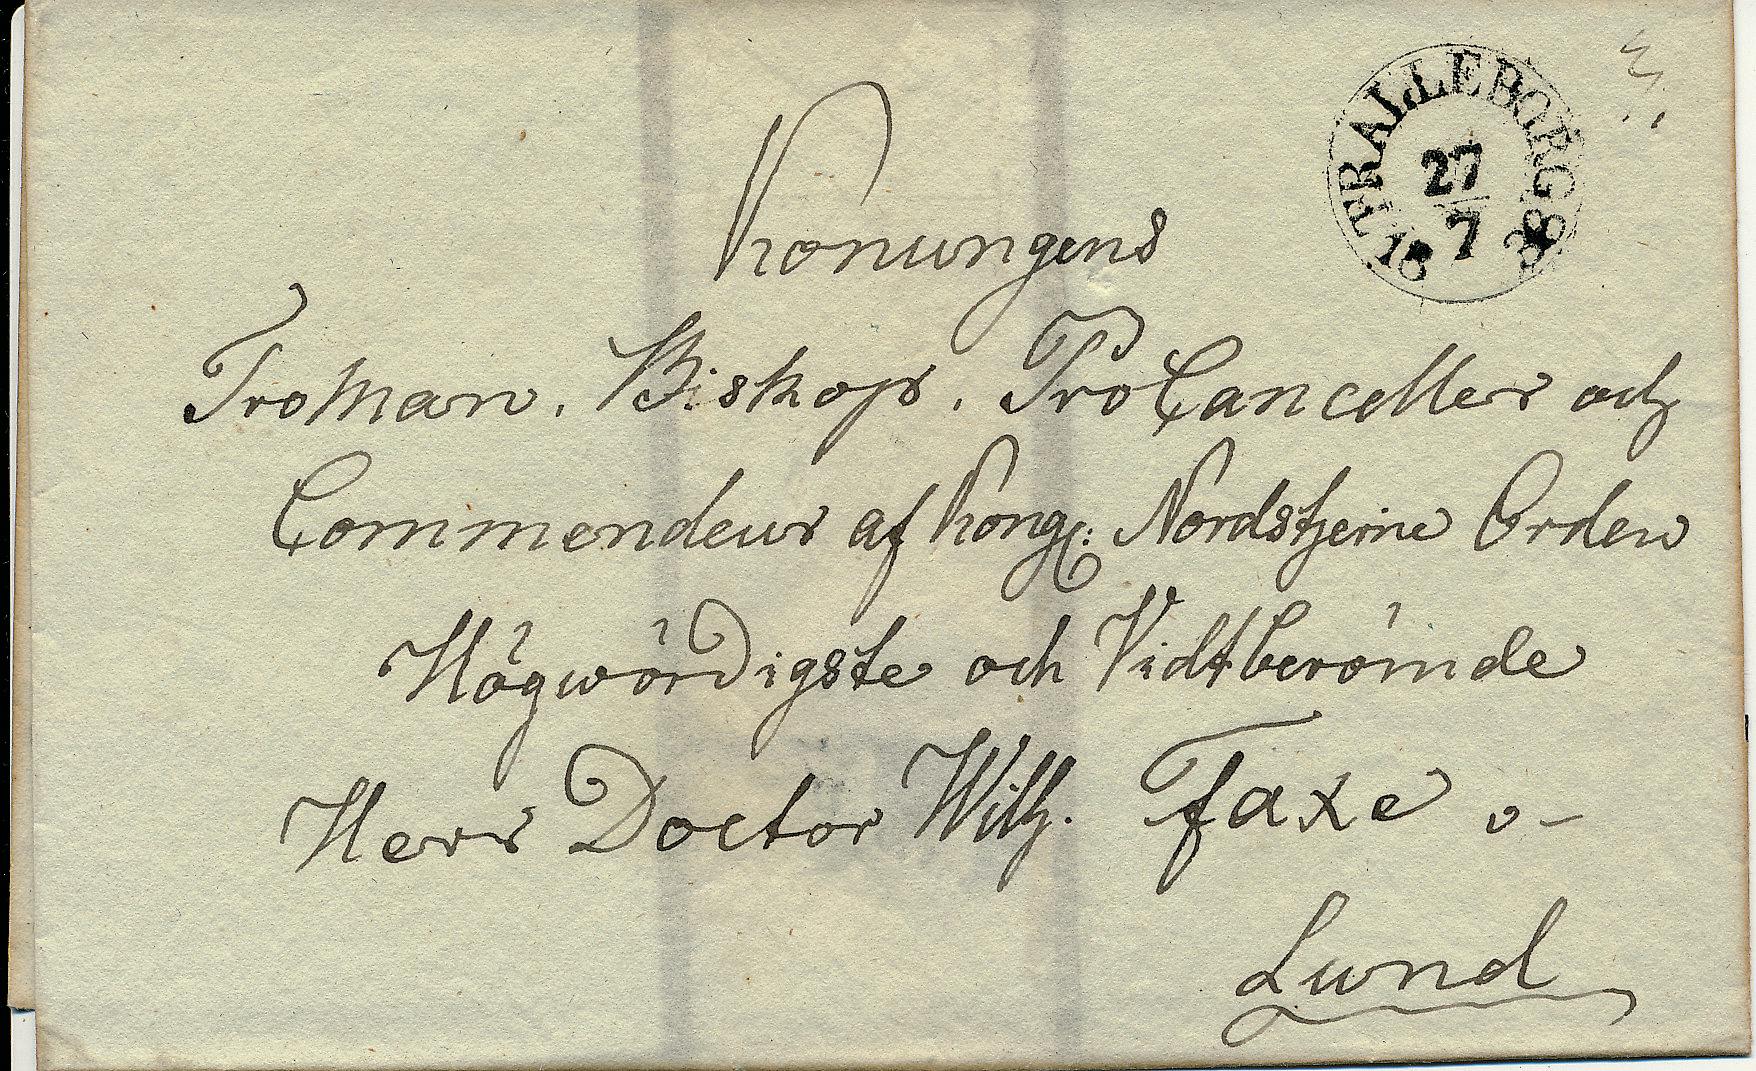 TRALLEBORG
27
7
1838
Konungens
TroMan, Biskop, ProCanceller och
Commendeur af Kongl: Nordstjerne Orden
Högwördigste och Vidtberömde
Herr Doctor Wilh. Faxe
Lund